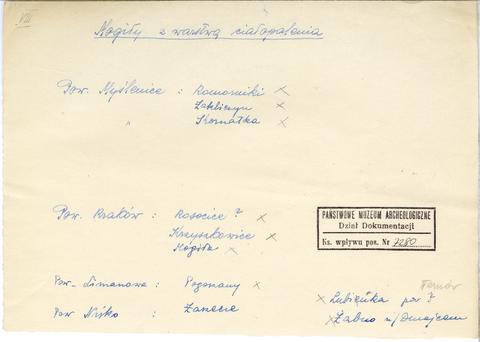 VIII
Mogiły z warstwą ciałopalenia
Pow. Myślenice : Komorniki x
Zakliczyn x
" Kornatka x
Pow. Kraków : Kosocice ? x
Krzyszkowice x
Mogiła x
PAŃSTWOWE MUZEUM ARCHEOLOGICZNE
Dział Dokumentacji
Ks. wpływu poz. Nr 7280
Pow. Limanowa : Pogorzany x
Pow Nisko : Zarzecze
Tarnów
x Lubinka pow ?
x Żabno n/Dunajcem